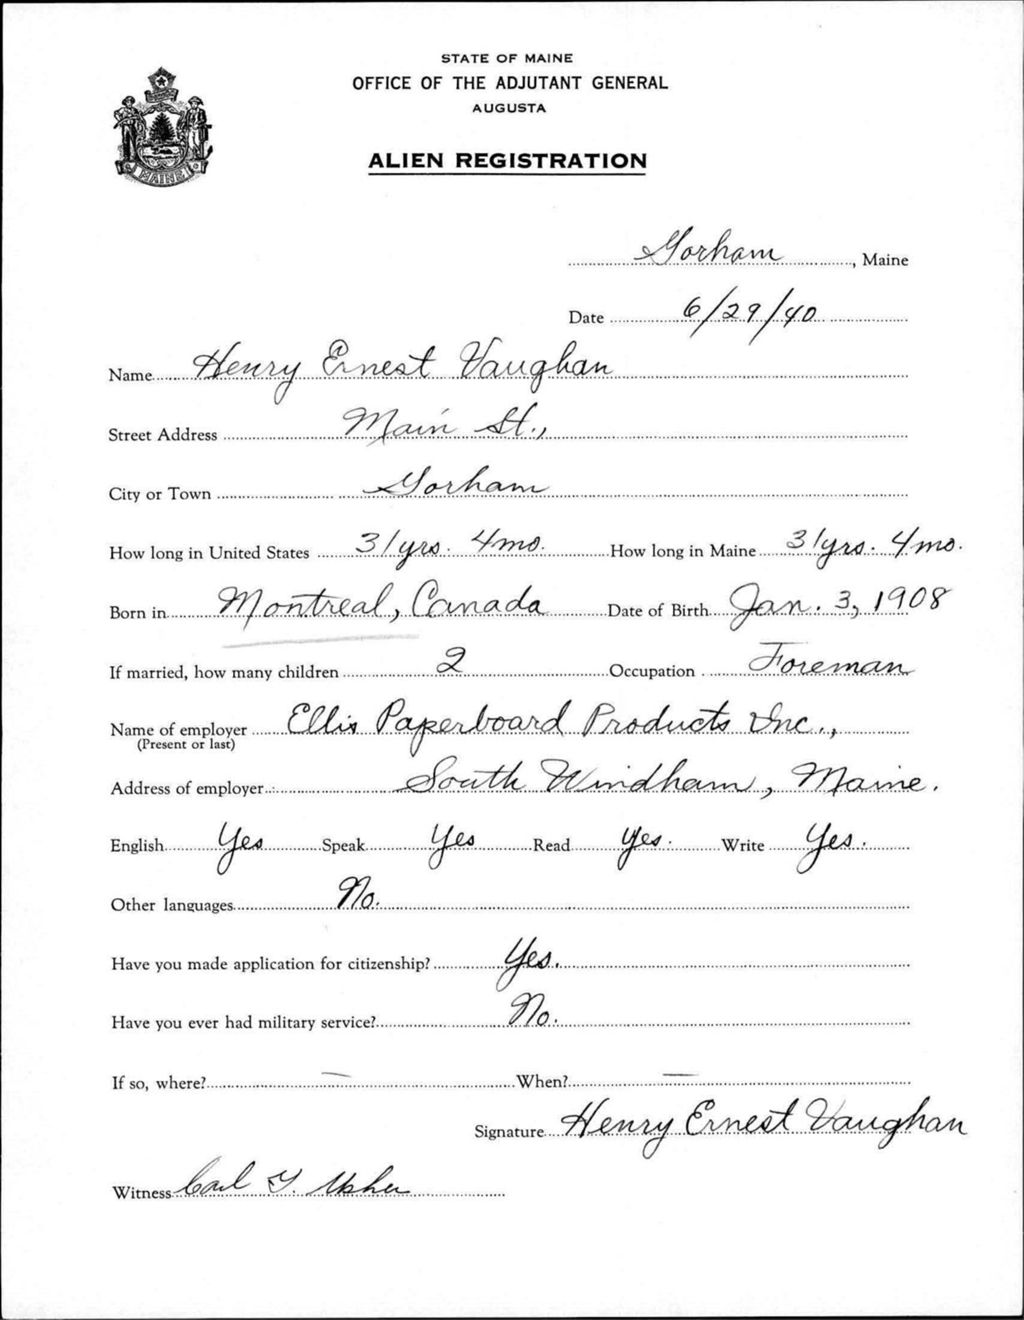 STATE OF MAINE
OFFICE OF THE ADJUTANT GENERAL
AUGUSTA
ALIEN REGISTRATION
MAINE
Gorham, Maine
Date 6/29/40
Name Henry Ernest Vaughan
Street Address Main St.,
City or Town Gorham
How long in United States 31 yrs. 4 mo. How long in Maine 31 yrs. 4 mo.
Born in Montreal, Canada Date of Birth Jan. 3, 1908
If married, how many children 2 Occupation Foreman
Name of employer Ellis Paperboard Products Inc.,
(Present or last)
Address of employer South Windham, Maine.
English Yes Speak Yes Read Yes. Write Yes.
Other languages No.
Have you made application for citizenship? Yes.
Have you ever had military service? No.
If so, where? — When? —
Signature Henry Ernest Vaughan
Witness Carl